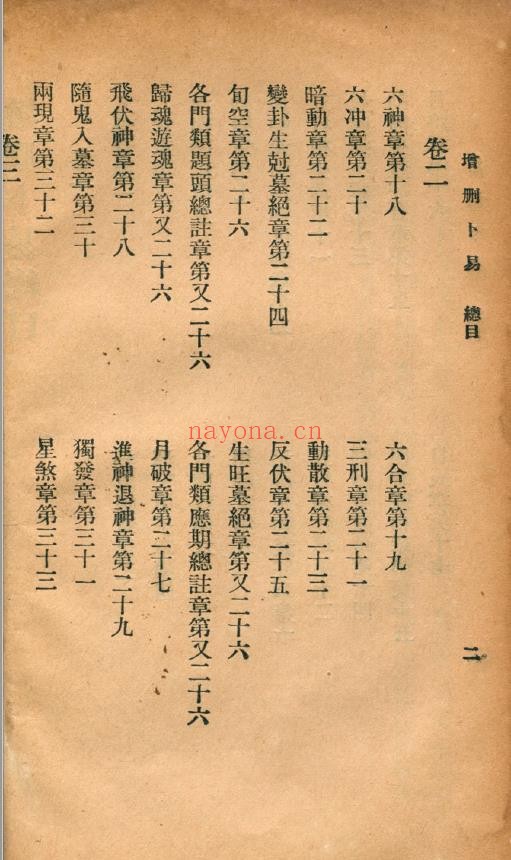 增删卜易 總目 二
卷二
六神章第十八 六合章第十九
六冲章第二十 三刑章第二十一
暗動章第二十二 動散章第二十三
變卦生尅墓絕章第二十四 反伏章第二十五
旬空章第二十六 生旺墓絕章第又二十六
各門類題頭總註章第又二十六 各門類應期總註章第又二十六
歸魂遊魂章第又二十六 月破章第二十七
飛伏神章第二十八 進神退神章第二十九
隨鬼入墓章第三十 獨發章第三十一
兩現章第三十二 星煞章第三十三
卷三
nayona.cn